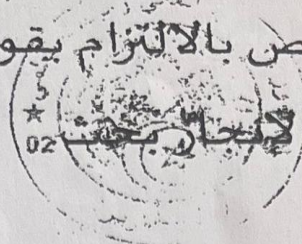 ص بالالتزام بقو
لإنجاز بحث
02